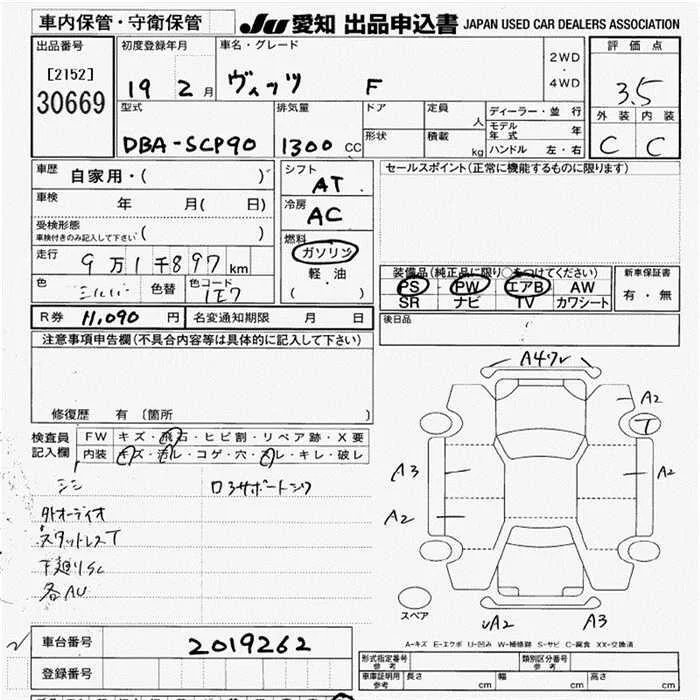 車内保管・守衛保管
JU 愛知 出品申込書 JAPAN USED CAR DEALERS ASSOCIATION
出品番号
[2152]
30669
初度登録年月
19 2月
車名・グレード
ヴィッツ F
2WD
・
4WD
評価点
3.5
外装 内装
C C
型式
DBA-SCP90
排気量
1300 CC
ドア
形状
定員 人
積載 kg
ディーラー・並行
モデル年式 年
ハンドル 左・右
車歴 自家用・( )
車検 年 月( 日)
受検形態
車検付きのみ記入して下さい ( )
走行 9万1千897 km
色 シルバー 色替 色コード 1E7
シフト
AT
冷房
AC
燃料
ガソリン
軽油
( )
セールスポイント(正常に機能するものに限ります)
装備品(純正品に限り○をつけてください)
PS・PW・エアB・AW
SR ナビ TV カワシート
新車保証書
有・無
R券 11,090 円 名変通知期限 月 日
後日品
注意事項申告欄(不具合内容等は具体的に記入して下さい)
修復歴 有 〔箇所 〕
検査員記入欄
FW キズ・飛石・ヒビ割・リペア跡・X要
内装 キズ・汚レ・コゲ・穴・スレ・キレ・破レ
外オーディオ
スタットレスT
下廻りSC
各AU
A4ワレ
A2
T
A3
A2
A2
スペア
A2
A3
A-キズ E-エクボ U-凹み W-補修跡 S-サビ C-腐食 XX-交換済
車台番号 2019262
登録番号
形式指定番号 参考
類別区分番号 参考
車庫証明用 参考
長さ cm 幅 cm 高さ cm